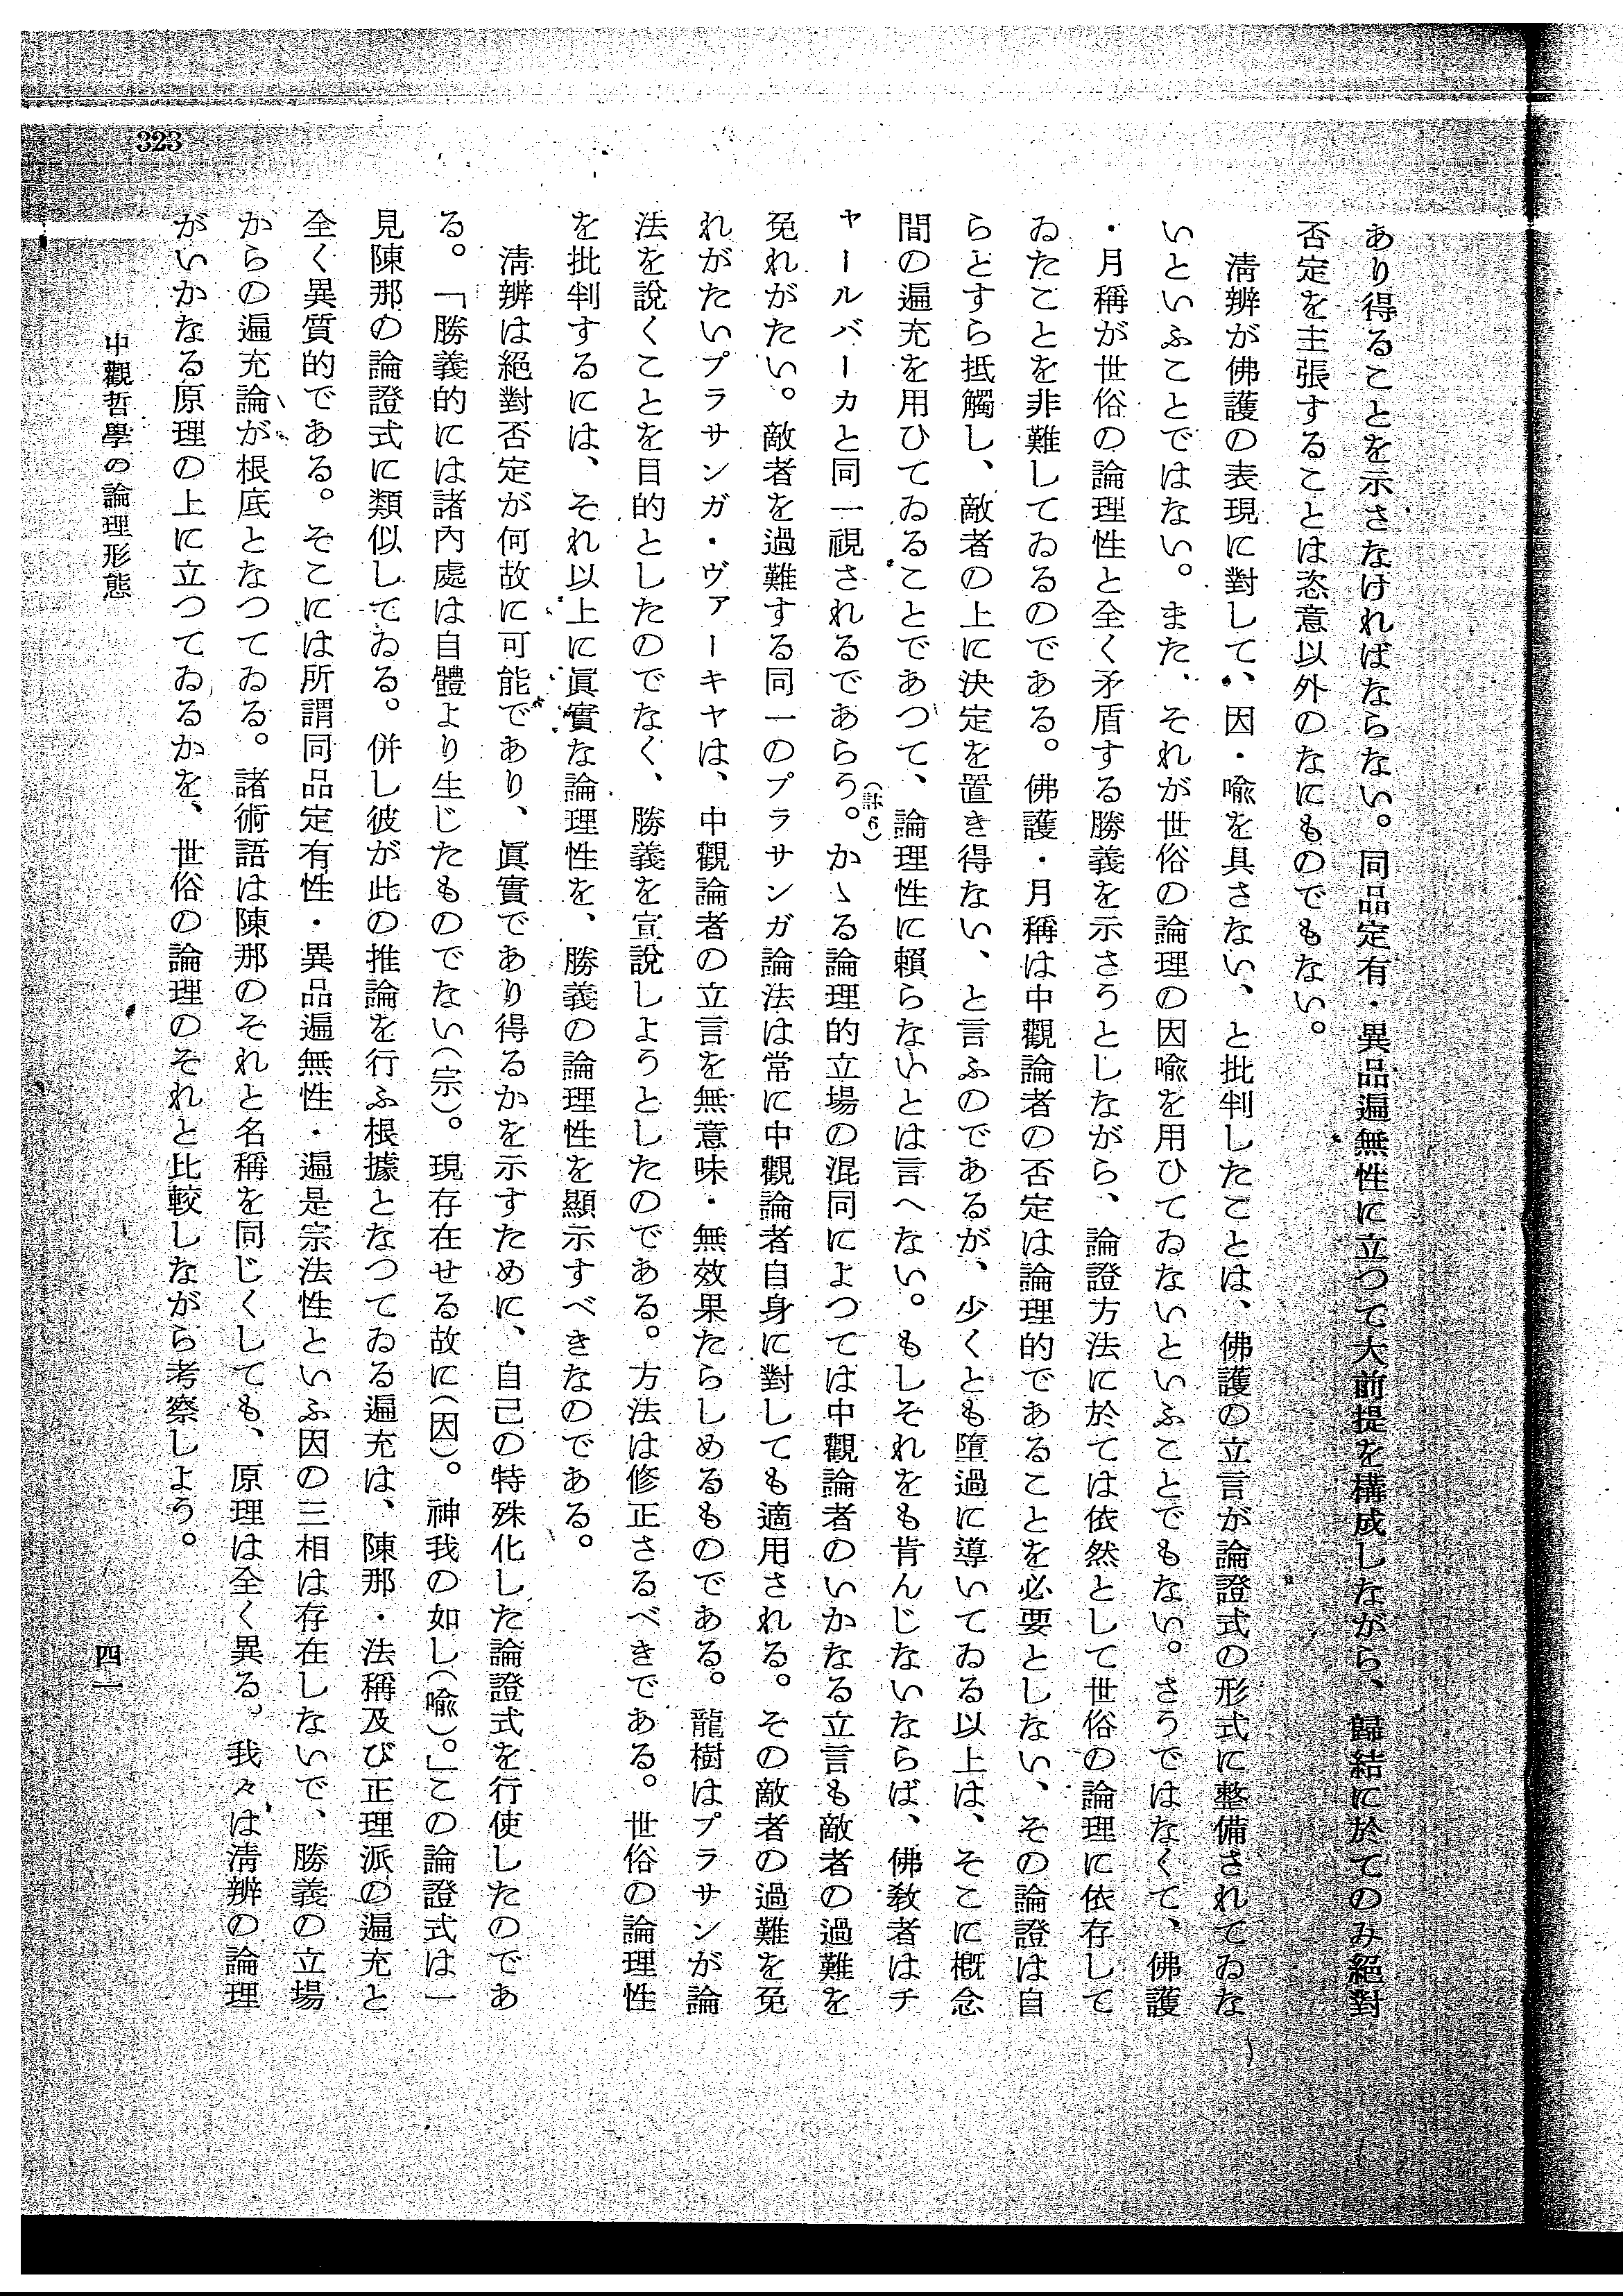 あり得ることを示さなければならない。同品定有・異品遍無性に立つて大前提を構成しながら、歸結に於てのみ絕對
否定を主張することは恣意以外のなにものでもない。
淸辨が佛護の表現に對して、因・喩を具さない、と批判したことは、佛護の立言が論證式の形式に整備されてゐな
いといふことではない。また、それが世俗の論理の因喩を用ひてゐないといふことでもない。さうではなくて、佛護
・月稱が世俗の論理性と全く矛盾する勝義を示さうとしながら、論證方法に於ては依然として世俗の論理に依存して
ゐたことを非難してゐるのである。佛護・月稱は中觀論者の否定は論理的であることを必要としない、その論證は自
らとすら抵觸し、敵者の上に決定を置き得ない、と言ふのであるが、少くとも墮過に導いてゐる以上は、そこに槪念
間の遍充を用ひてゐることであつて、論理性に賴らないとは言へない。もしそれをも肯んじないならば、佛敎者はチ
ャールバーカと同一視されるであらう。(註6)かゝる論理的立場の混同によつては中觀論者のいかなる立言も敵者の過難を
免れがたい。敵者を過難する同一のプラサンガ論法は常に中觀論者自身に對しても適用される。その敵者の過難を免
れがたいプラサンガ・ヴァーキヤは、中觀論者の立言を無意味・無效果たらしめるものである。龍樹はプラサンが論
法を說くことを目的としたのでなく、勝義を宣說しようとしたのである。方法は修正さるべきである。世俗の論理性
を批判するには、それ以上に眞實な論理性を、勝義の論理性を顯示すべきなのである。
淸辨は絕對否定が何故に可能であり、眞實であり得るかを示すために、自己の特殊化した論證式を行使したのであ
る。「勝義的には諸內處は自體より生じたものでない(宗)。現存在せる故に(因)。神我の如し(喩)。」この論證式は一
見陳那の論證式に類似してゐる。併し彼が此の推論を行ふ根據となつてゐる遍充は、陳那・法稱及び正理派の遍充と
全く異質的である。そこには所謂同品定有性・異品遍無性・遍是宗法性といふ因の三相は存在しないで、勝義の立場
からの遍充論が根底となつてゐる。諸術語は陳那のそれと名稱を同じくしても、原理は全く異る。我々は淸辨の論理
がいかなる原理の上に立つてゐるかを、世俗の論理のそれと比較しながら考察しよう。
中觀哲學の論理形態
四一
323